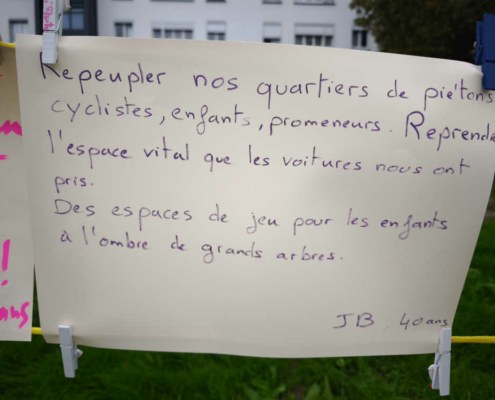 Repeupler nos quartiers de piétons
cyclistes, enfants, promeneurs. Reprendre
l'espace vital que les voitures nous ont
pris.
Des espaces de jeu pour les enfants
à l'ombre de grands arbres.
JB. 40 ans
!
ans